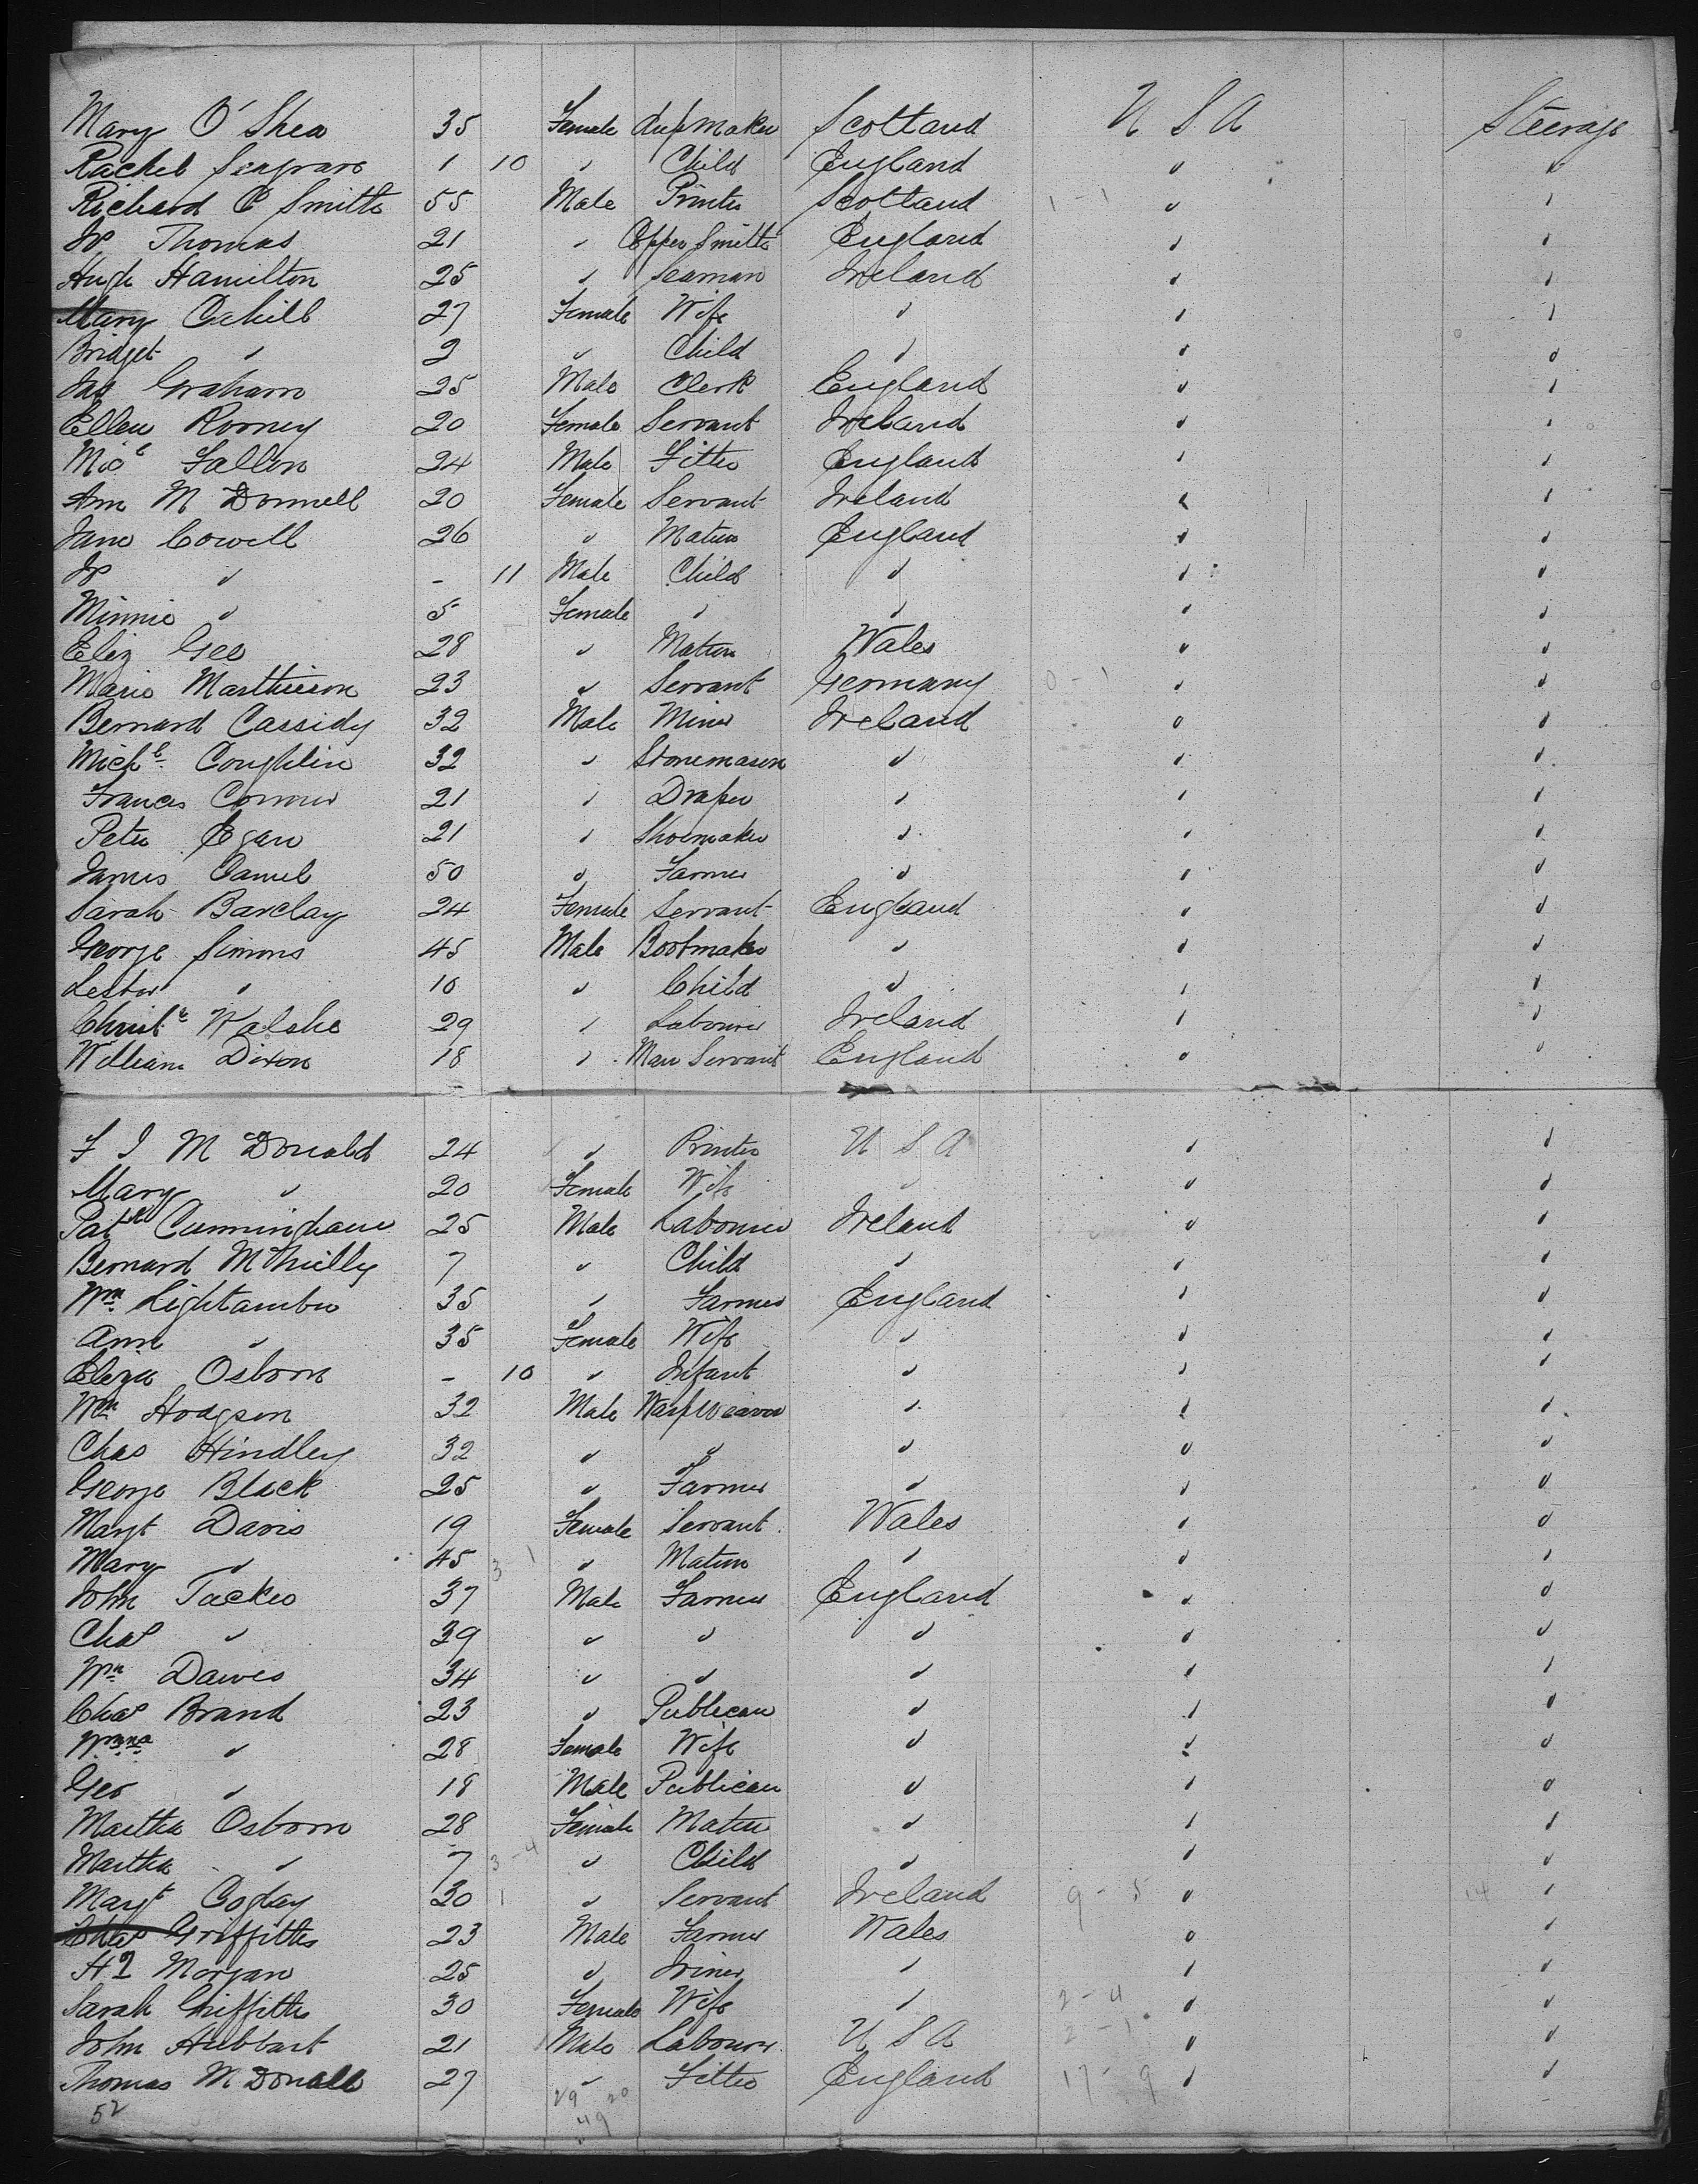 Mary O'Shea 35 Female Scotland U S A Steerage
Rachel Seagrave 1 10 " Child England " "
Richard C Smith 55 Male Printer Scotland 1 - 1 " "
Js Thomas 21 " Coppersmith England " "
Hugh Hamilton 25 " Seaman Ireland " "
Mary Cahill 27 Female Wife " " "
Bridget " 2 " Child " " "
Jas Graham 25 Male Clerk England " "
Ellen Rooney 20 Female Servant Ireland " "
Micl Fallon 24 Male Fitter England " "
Ann McDonnell 20 Female Servant Ireland " "
Jane Cowell 26 " Matron England " "
Js " - 11 Male Child " " "
Minnie " 5 Female " " " "
Eliz Geo 28 " Matron Wales " "
Marie Marthieson 23 " Servant Germany 0 - 1 " "
Bernard Cassidy 32 Male Miner Ireland " "
Michl Coughlin 32 " Stonemason " " "
Francis Connor 21 " Draper " " "
Peter Egan 21 " Shoemaker " " "
James Camel 50 " Farmer " " "
Sarah Barclay 24 Female Servant England " "
George Simons 45 Male Bootmaker " " "
Lester " 10 " Child " " "
Christr Walshe 29 " Labourer Ireland " "
William Dixon 18 " Man Servant England " "
F J McDonald 24 " Printer U S A " "
Mary " 20 Female Wife " " "
Patk Cunningham 25 Male Labourer Ireland " "
Bernard 7 " Child " " "
Wm 35 " Farmer England " "
Ann " 35 Female Wife " " "
Eliza Osborn - 10 " Infant " " "
Wm Hodgson 32 Male Warpweaver " " "
Chas Hindley 32 " " " " "
George Black 25 " Farmer " " "
Margt Davis 19 Female Servant Wales " "
Mary " 45 3 1 " Matron " " "
John Tacker 37 Male Farmer England " "
Chas " 39 " " " " "
Wm Dawes 34 " " " " "
Chas Brand 23 " Publican " " "
" 28 Female Wife " " "
Geo " 18 Male Publican " " "
Martha Osborn 28 Female Matron " " "
Martha " 7 3 - 4 " Child " " "
Margt 30 1 " Servant Ireland 9 - 5 " 14 "
Chas Griffiths 23 Male Farmer Wales " "
H J Morgan 25 " " " "
Sarah Griffiths 30 Female Wife " 2 - 4 " "
John Hubbart 21 Male Labourer U S A 2 - 1 " "
Thomas McDonald 27 " Fitter England 17 - 9 " "
52 29 20
49